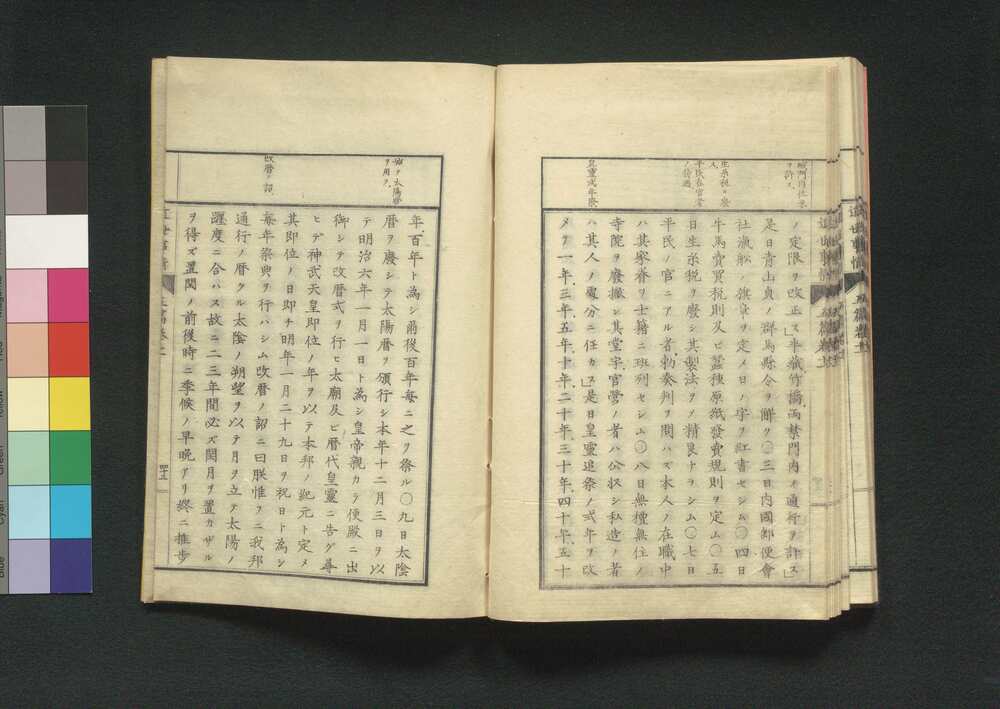 ノ定限ヲ改正ス」半蔵竹橋両禁門内ノ通行ヲ許ス」
是日青山貞ノ群馬縣令ヲ解ク〇三日内國郵便會
社漁舩ノ旗章ヲ定メ日ノ字ヲ紅書セシム〇四日
牛馬賣買税則及ビ蚕種原紙發賣規則ヲ定ム〇五
日生糸税ヲ廢シ其製法ヲノ精良ナラシム〇七日
平民ノ官ニアル者勅奏判ヲ問ハズ本人ノ在職中
ハ其家眷ヲ士籍ニ班列セシム〇八日無檀無住ノ
寺院ヲ廢撤シ其堂宇官營ノ者ハ公収シ私造ノ者
ハ其人ノ處分ニ任カス」是日皇靈追祭ノ式年ヲ改
メテ一年三年五年十年二十年三十年四十年五十
皇靈式年祭
年百年ト為シ爾後百年毎ニ之ヲ祭ル〇九日太陰
暦ヲ廢シテ太陽暦ヲ頒行シ本年十二月三日ヲ以
テ明治六年一月一日ト為シ皇帝親カラ便殿ニ出
御シテ改暦式ヲ行ヒ太廟及ビ暦代皇靈ニ告グ尋
ヒデ神武天皇即位ノ年ヲ以テ本邦ノ紀元ト定メ
其即位ノ日即チ明年一月二十九日ヲ祝日ト為シ
毎年祭典ヲ行ハシム改暦ノ詔ニ曰朕惟フニ我邦
通行ノ暦タル太陰ノ朔望ヲ以テ月ヲ立テ太陽ノ
躔度ニ合ハス故ニ二三年間必ズ閏月ヲ置カザル
ヲ得ズ置閏ノ前後時ニ季候ノ早晩アリ終ニ推歩
改暦ノ詔
四十五